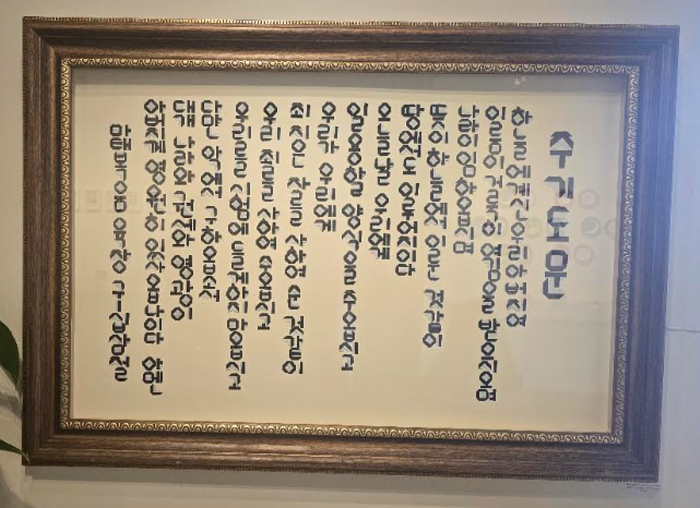 주기도문
하늘에 계신 우리 아버지여
이름이 거룩히 여김을 받으시오며
나라이 임하옵시며
뜻이 하늘에서 이룬 것 같이
땅에서도 이루어지이다
오늘날 우리에게
일용할 양식을 주옵시고
우리가 우리에게
죄 지은 자를 사하여 준 것 같이
우리 죄를 사하여 주옵시고
우리를 시험에 들게 하지 마옵시고
다만 악에서 구하옵소서
대개 나라와 권세와 영광이
아버지께 영원히 있사옵나이다 아멘
마태복음 육장 구-십삼절